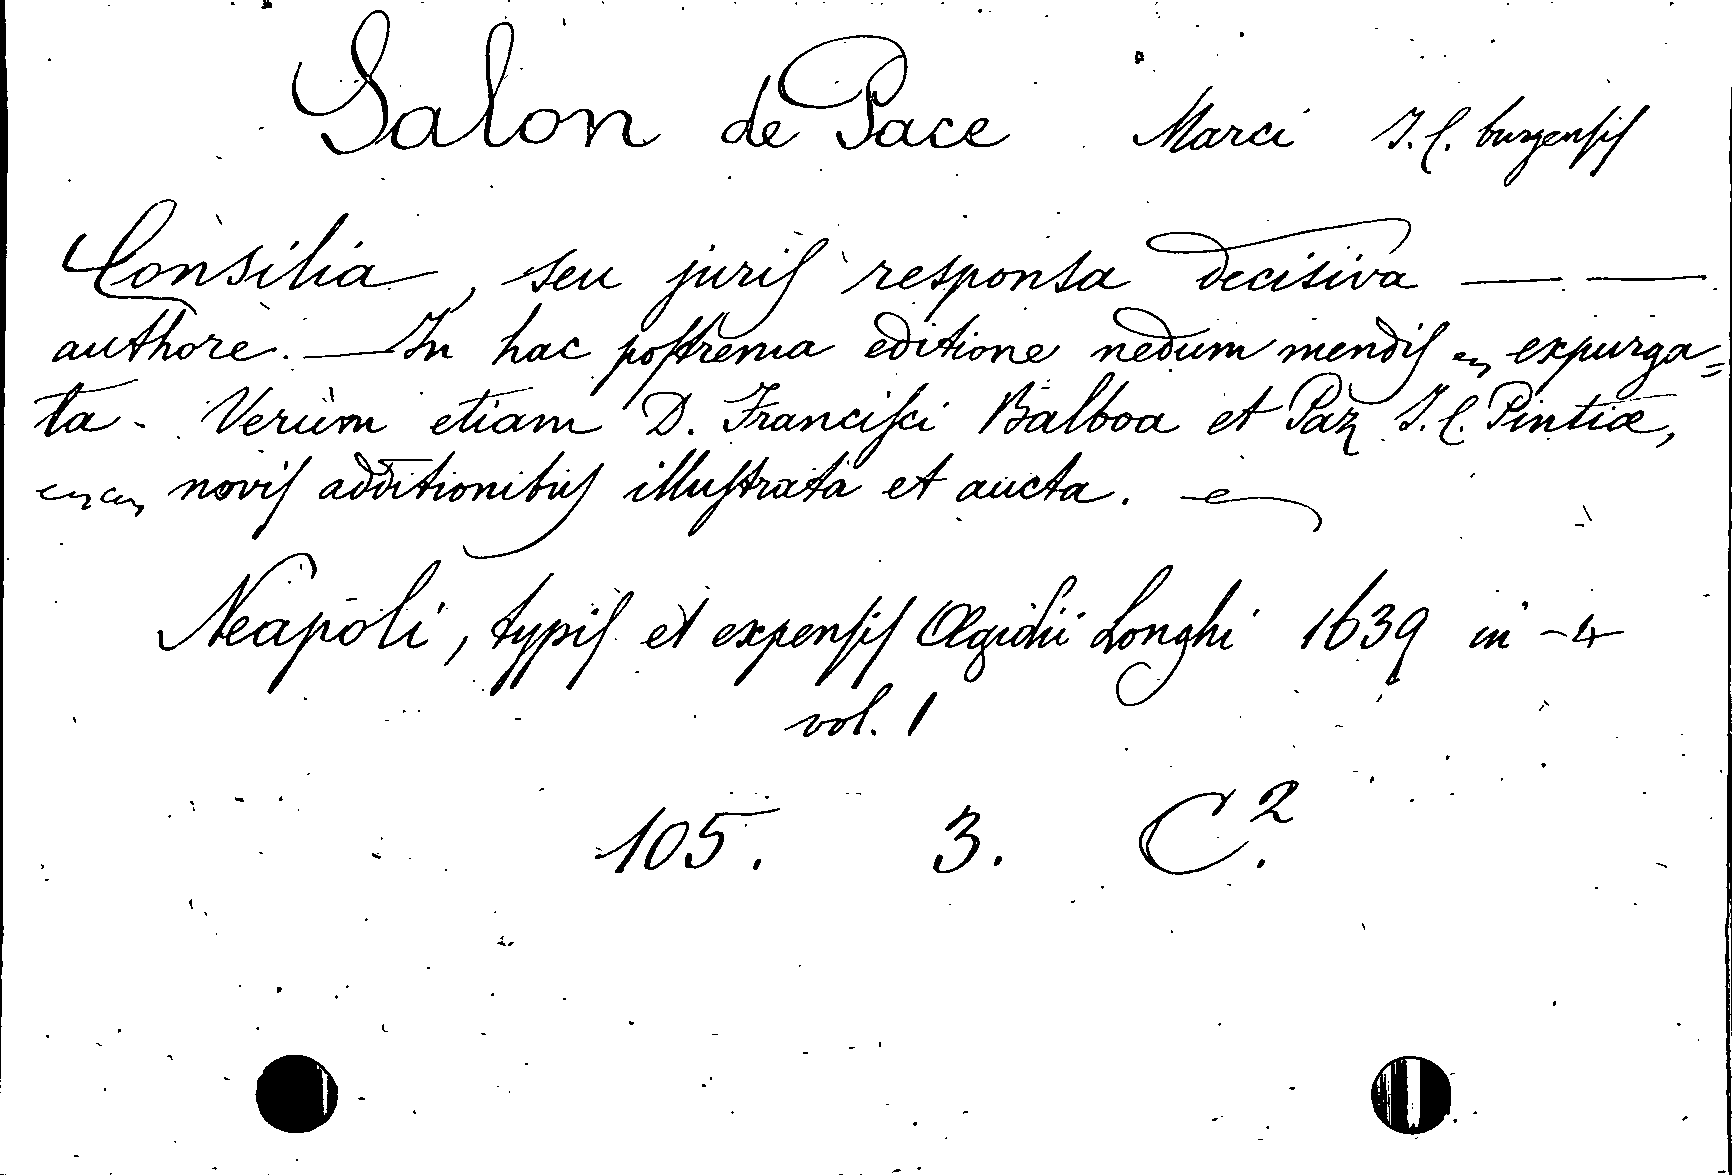 Salon de Pace Marci J. C. burgensis
Consilia, seu juris responsa decisiva — —
authore. — In hac postrema editione nedum mendis expurga=
ta. Verùm etiam D. Francisci Balboa et Paz J. C. Pintiæ,
novis additionibus illustrata et aucta.
Neapoli, typis et expensis Ægidii Longhi 1639 in-4
vol. 1
105. 3. C.²